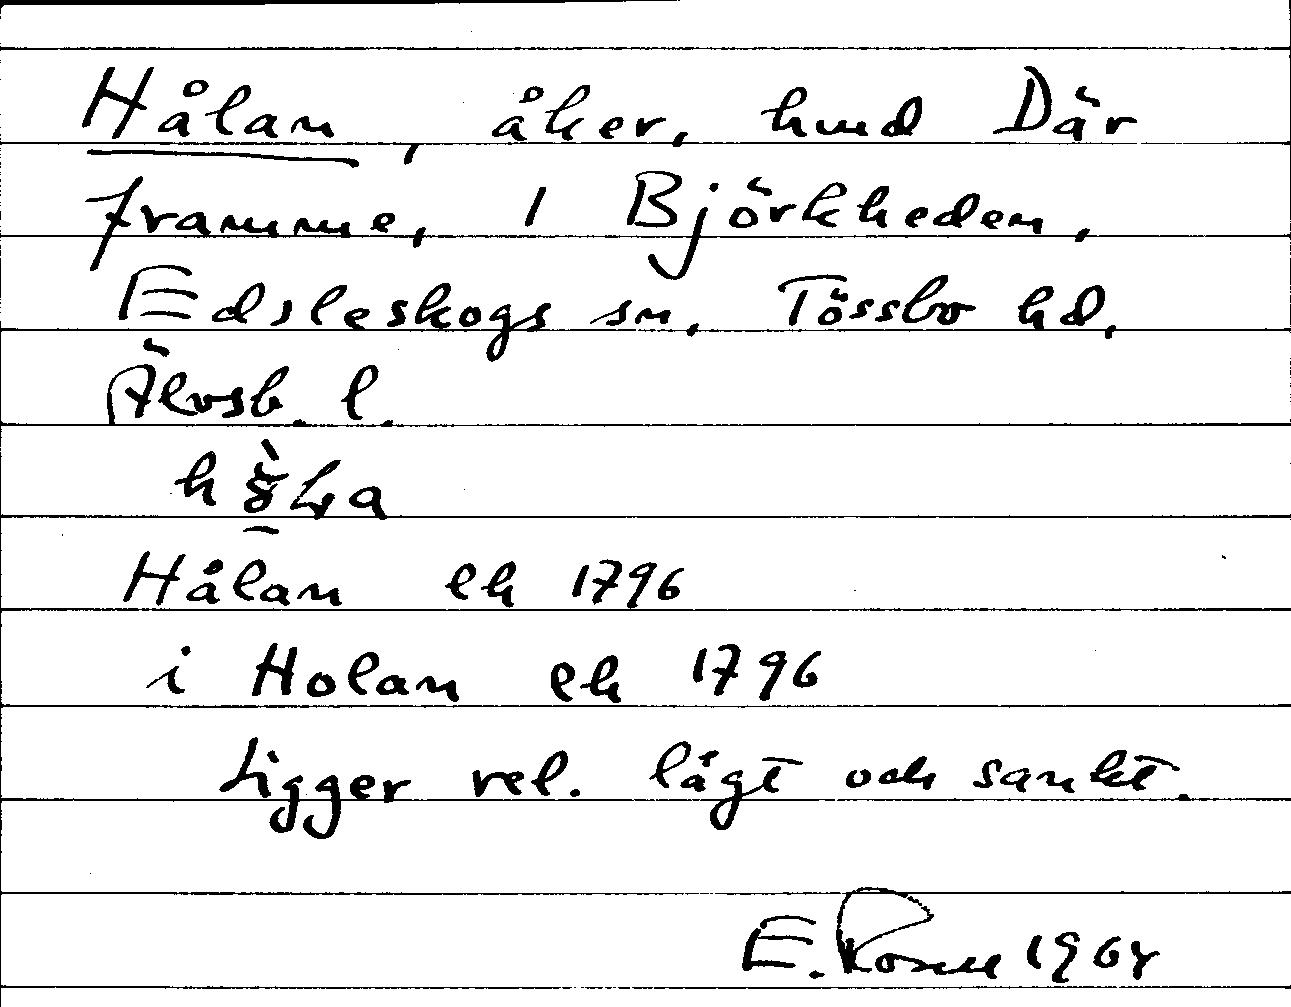 Hålan, åker, hmd Där
framme, i Björkheden,
Edsleskogs sn, Tössbo hd,
Älvsb. l.
Hålan lh 1796
i Holan lh 1796
Ligger rel. lågt och sankt.
E. Rosen